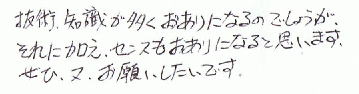 技術、知識が多くおありになるのでしょうが、
それに加え、センスもおありになると思います。
ぜひ、又、お願いしたいです。